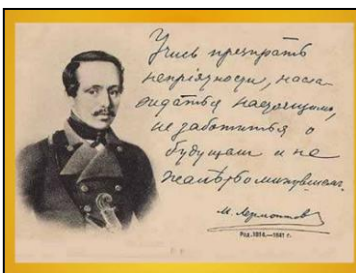 Учись презирать
непріязности, насла-
ждаться настоящимъ,
не заботиться о
будущемъ и не
жалѣть о минувшемъ.
М. Лермонтовъ
Род. 1814.—1841 г.